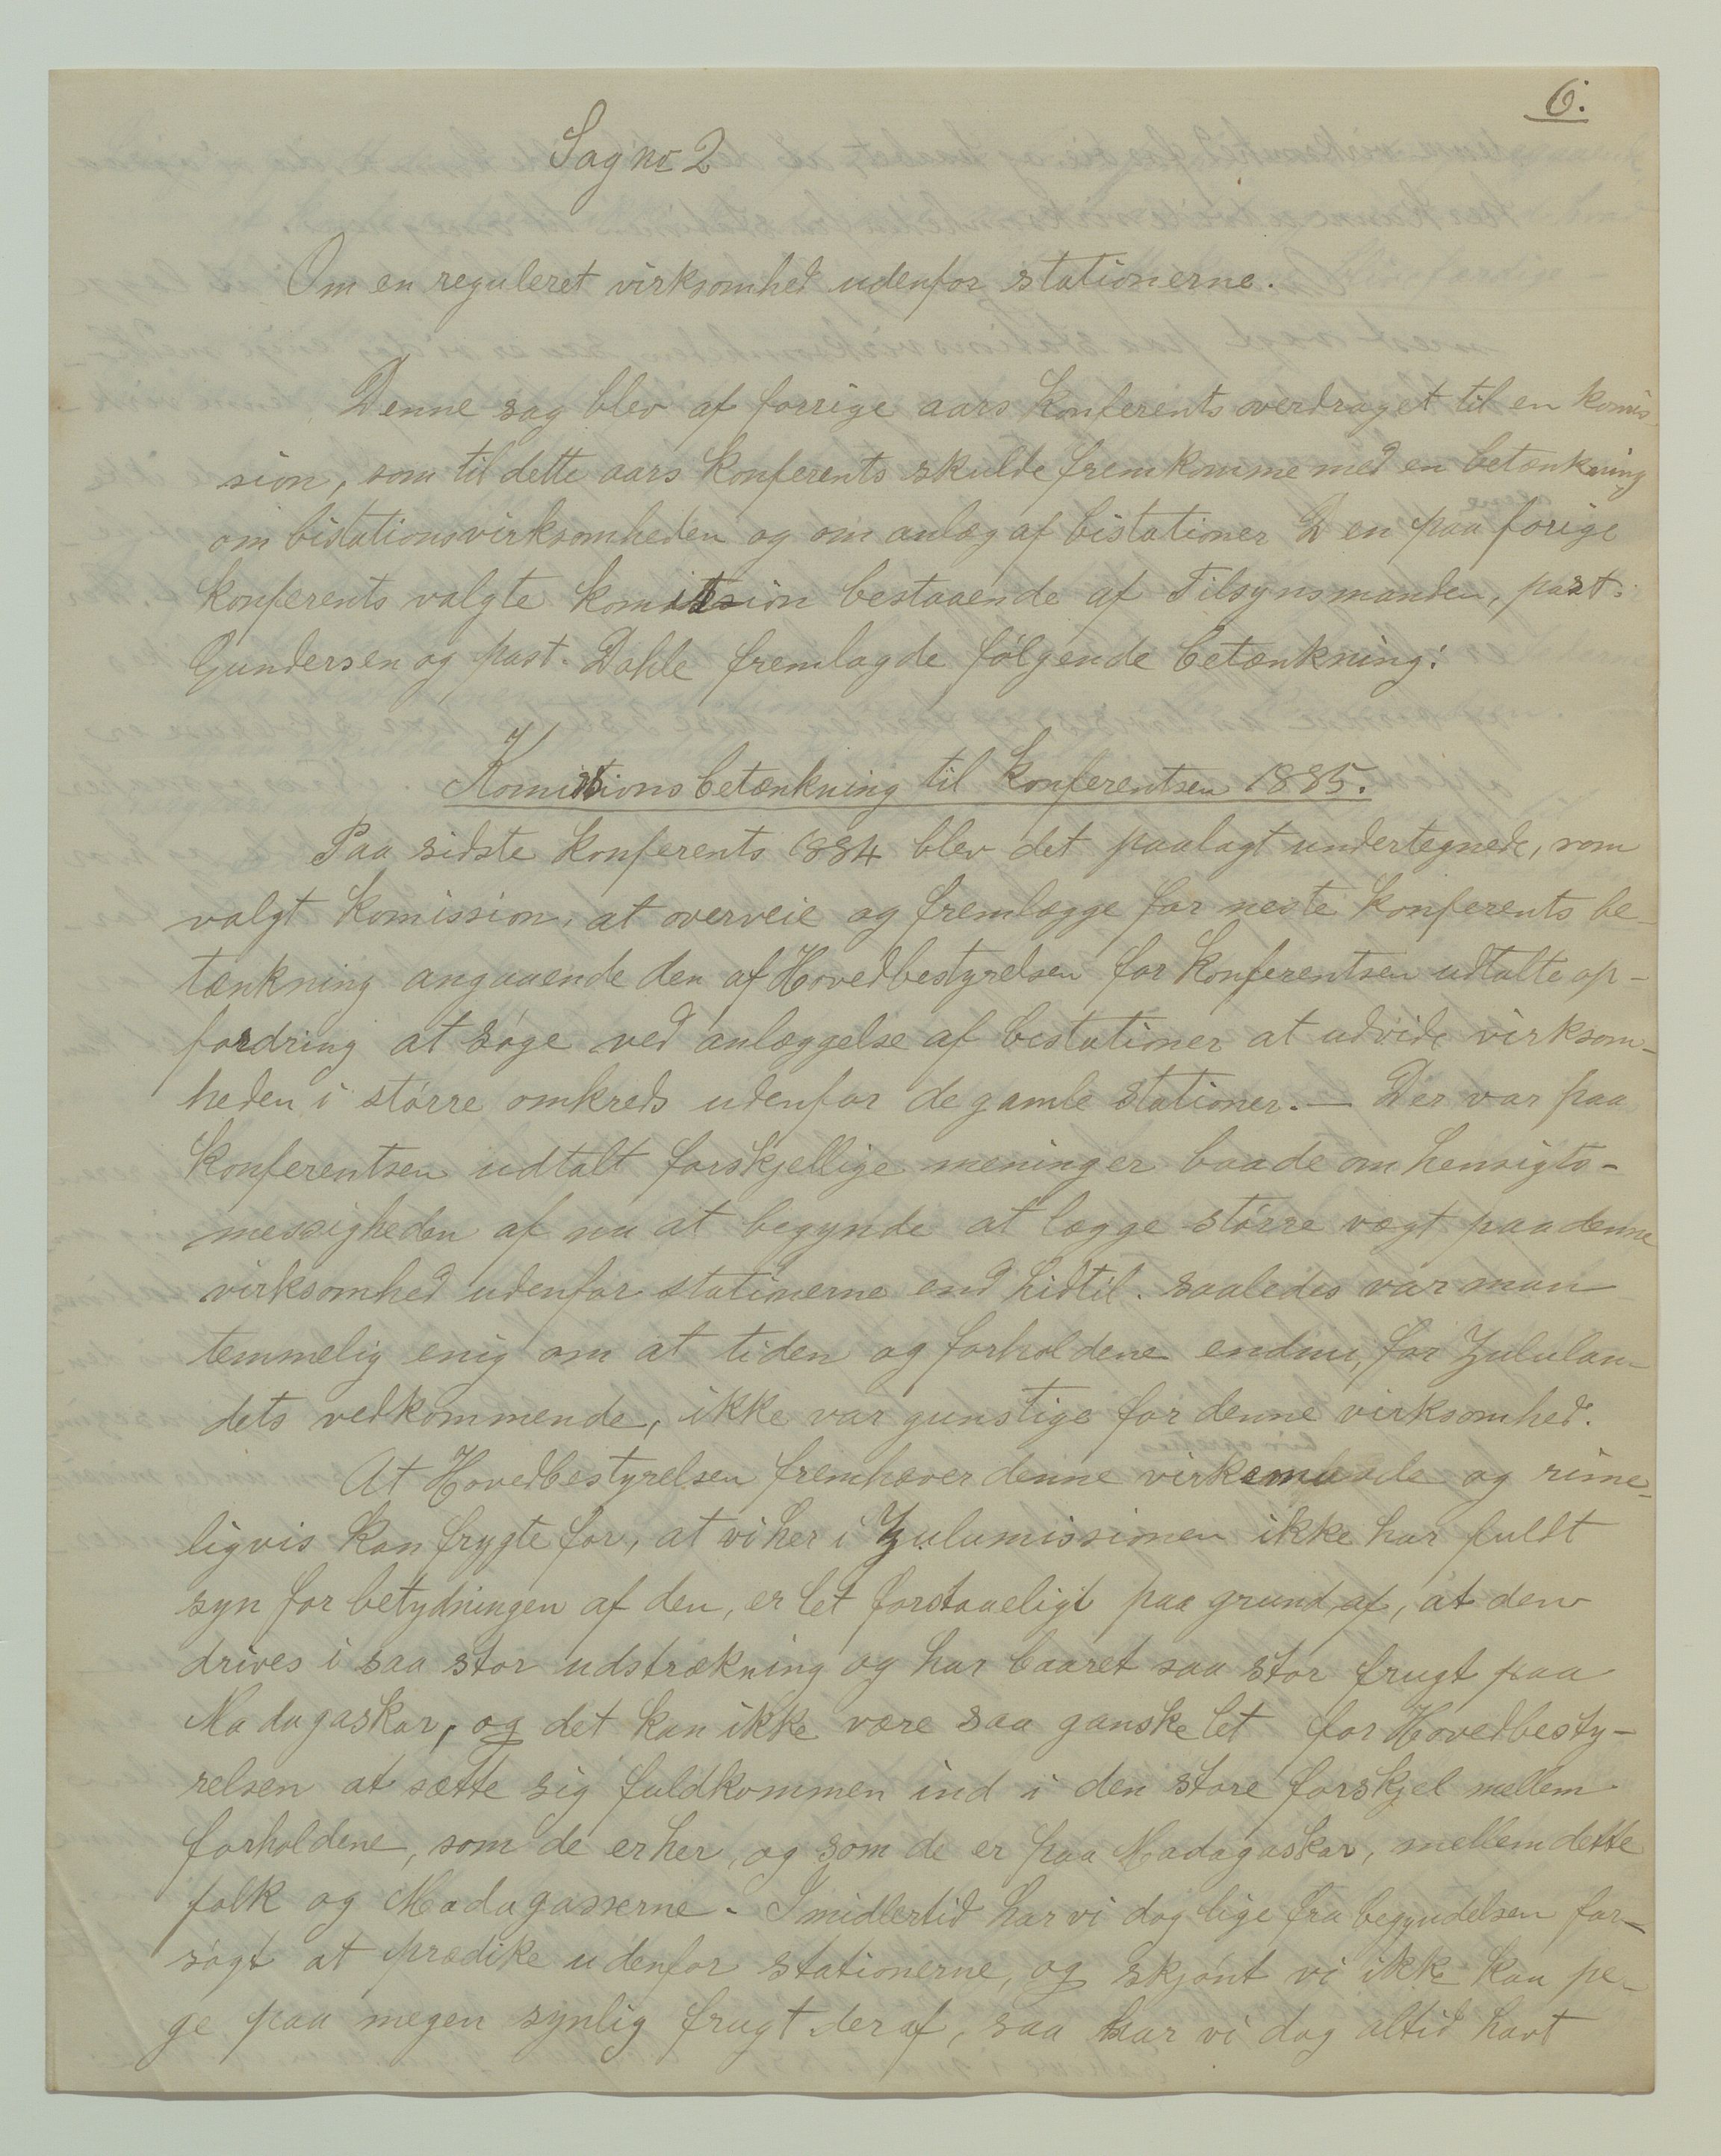 6.
Sag no 2
Om en reguleret virksomhed udenfor stationerne.
Denne sag blev af forrige aars konferents overdraget til en komis-
sion, som til dette aars konferents skulde fremkomme med en betænkning
om bistationsvirksomheden og om anlæg af bistationer Den paa forige
konferents valgte komission bestaaende af Tilsynsmanden, past.
Gundersen og past. Dahle fremlagde følgende betænkning:
Komissionsbetænkning til konferentsen 1885.
Paa sidste konferents 1884 blev det paalagt undertegnede, som
valgt komission, at overveie og fremlægge for neste konferents be-
tænkning angaaende den af Hovedbestyrelsen for konferentsen udtalte op-
fordring at søge ved anlæggelse af bistationer at udvide virksom-
heden i større omkreds udenfor de gamle stationer. — Der var paa
konferentsen udtalt forskjellige meninger baade om hensigts-
messigheden af nu at begynde at lægge større vægt paa denne
virksomhed udenfor stationerne end hidtil. saaledes var man
temmelig enig om at tiden og forholdene endnu, for Zululan-
dets vedkommende, ikke var gunstige for denne virksomhed.
At Hovedbestyrelsen fremhæver denne og rime-
ligvis kan frygte for, at vi her i Zulumissionen ikke har fuldt
syn for betydningen af den, er let forstaaeligt paa grund af, at den
drives i saa stor udstrækning og har baaret saa stor frugt paa
Madagaskar, og det kan ikke være saa ganske let for Hovedbesty-
relsen at sætte sig fuldkommen ind i den store forskjel mellem
forholdene, som de er her, og som de er paa Madagaskar, mellem dette
folk og Madagasserne. Imidlertid har vi dog lige fra begyndelsen for-
søgt at prædike udenfor stationerne, og skjønt vi ikke kan pe-
ge paa megen synlig frugt deraf, saa har vi dog altid havt